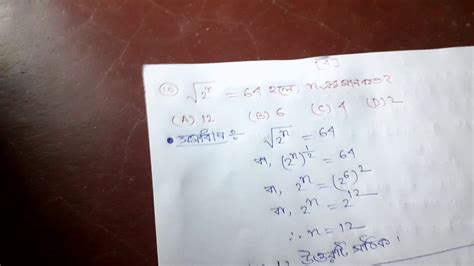 [4]
(10) √2ⁿ = 64 হলে, n এর মান কত?
(A) 12 (B) 6 (C) 4 (D) 2
√2ⁿ = 64
বা, (2ⁿ)^½ = 64
বা, 2ⁿ = (2⁶)²
বা, 2ⁿ = 2¹²
∴ n = 12
উত্তরটি সঠিক।